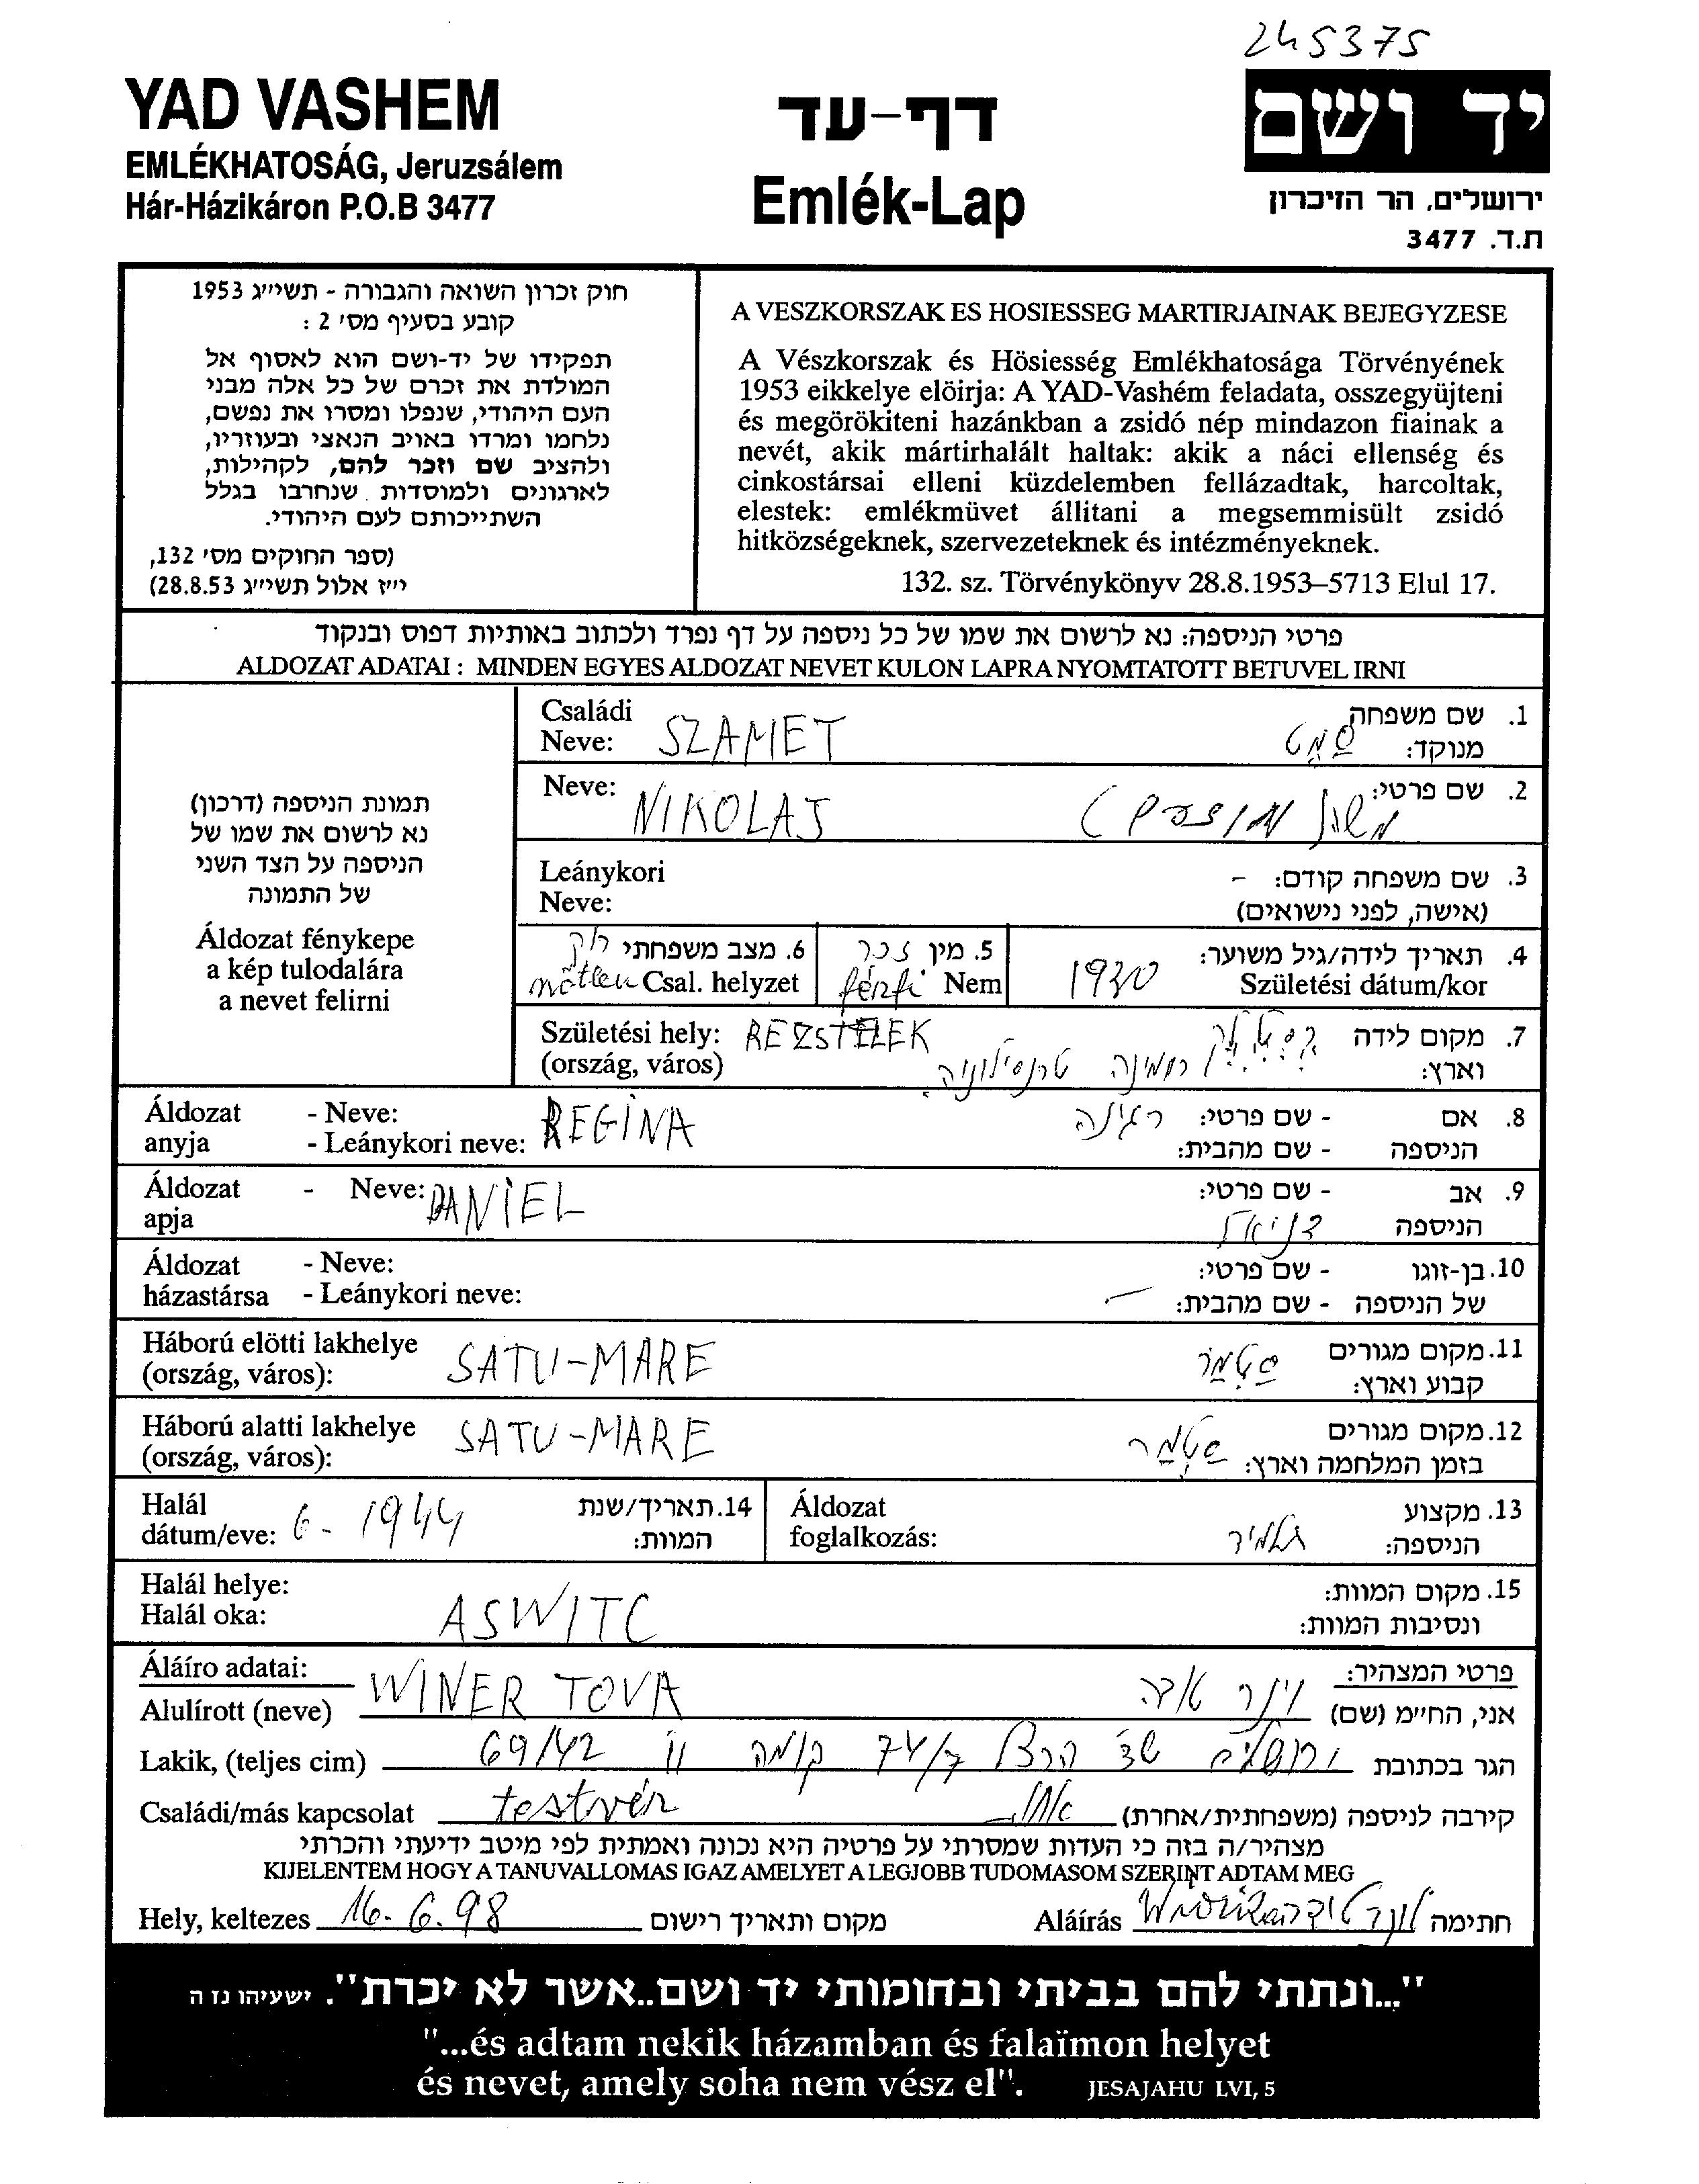 245375
YAD VASHEM
EMLÉKHATOSÁG, Jeruzsálem
Hár-Házikáron P.O.B 3477
דף-עד
Emlék-Lap
יד ושם
ירושלים, הר הזיכרון
ת.ד. 3477
חוק זכרון השואה והגבורה - תשי״ג 1953
קובע בסעיף מס׳ 2 :
תפקידו של יד-ושם הוא לאסוף אל
המולדת את זכרם של כל אלה מבני
העם היהודי, שנפלו ומסרו את נפשם,
נלחמו ומרדו באויב הנאצי ובעוזריו,
ולהציב שם וזכר להם, לקהילות,
לארגונים ולמוסדות שנחרבו בגלל
השתייכותם לעם היהודי.
(ספר החוקים מס׳ 132,
י״ז אלול תשי״ג 28.8.53)
A VESZKORSZAK ES HOSIESSEG MARTIRJAINAK BEJEGYZESE
A Vészkorszak és Hösiesség Emlékhatosága Törvényének
1953 eikkelye elöirja: A YAD-Vashém feladata, osszegyüjteni
és megörökiteni hazánkban a zsidó nép mindazon fiainak a
nevét, akik mártirhalált haltak: akik a náci ellenség és
cinkostársai elleni küzdelemben fellázadtak, harcoltak,
elestek: emlékmüvet állitani a megsemmisült zsidó
hitközségeknek, szervezeteknek és intézményeknek.
132. sz. Törvénykönyv 28.8.1953–5713 Elul 17.
פרטי הניספה: נא לרשום את שמו של כל ניספה על דף נפרד ולכתוב באותיות דפוס ובנקוד
ALDOZAT ADATAI : MINDEN EGYES ALDOZAT NEVET KULON LAPRA NYOMTATOTT BETUVEL IRNI
תמונת הניספה (דרכון)
נא לרשום את שמו של
הניספה על הצד השני
של התמונה
Áldozat fénykepe
a kép tulodalára
a nevet felirni
Családi
Neve: SZAMET
1. שם משפחה
מנוקד: סמט
Neve: NIKOLAJ
2. שם פרטי:
Leánykori
Neve:
3. שם משפחה קודם: -
(אישה, לפני נישואים)
6. מצב משפחתי רווק
nőtlen Csal. helyzet
5. מין זכר
férfi Nem
4. תאריך לידה/גיל משוער:
1930 Születési dátum/kor
Születési hely: REZSTELEK
(ország, város)
7. מקום לידה
וארץ: רומניה טרנסילווניה
Áldozat - Neve: REGINA
anyja - Leánykori neve:
8. אם - שם פרטי: רגינה
הניספה - שם מהבית:
Áldozat - Neve: DANIEL
apja
9. אב - שם פרטי:
הניספה דניאל
Áldozat - Neve:
házastársa - Leánykori neve:
10. בן-זוגו - שם פרטי:
של הניספה - שם מהבית: —
Háború elötti lakhelye SATU-MARE
(ország, város):
11. מקום מגורים סטמר
קבוע וארץ:
Háború alatti lakhelye SATU-MARE
(ország, város):
12. מקום מגורים
בזמן המלחמה וארץ: סטמר
Halál
dátum/eve: 6-1944
14. תאריך/שנת
המוות:
Áldozat
foglalkozás:
13. מקצוע
הניספה: תלמיד
Halál helye:
Halál oka: ASWITC
15. מקום המוות:
ונסיבות המוות:
Áláíro adatai:
פרטי המצהיר:
Alulírott (neve) WINER TOVA
אני, הח״מ (שם) וינר
Lakik, (teljes cim) 69/42
הגר בכתובת ירושלים שד הרצל 74/7 קומה II
Családi/más kapcsolat testvér
קירבה לניספה (משפחתית/אחרת) אחות
מצהיר/ה בזה כי העדות שמסרתי על פרטיה היא נכונה ואמתית לפי מיטב ידיעתי והכרתי
KIJELENTEM HOGY A TANUVALLOMAS IGAZ AMELYET A LEGJOBB TUDOMASOM SZERINT ADTAM MEG
Hely, keltezes 16.6.98 מקום ותאריך רישום
Aláírás חתימה
"...ונתתי להם בביתי ובחומותי יד ושם..אשר לא יכרת". ישעיהו נז ה
"...és adtam nekik házamban és falaïmon helyet
és nevet, amely soha nem vész el". JESAJAHU LVI, 5